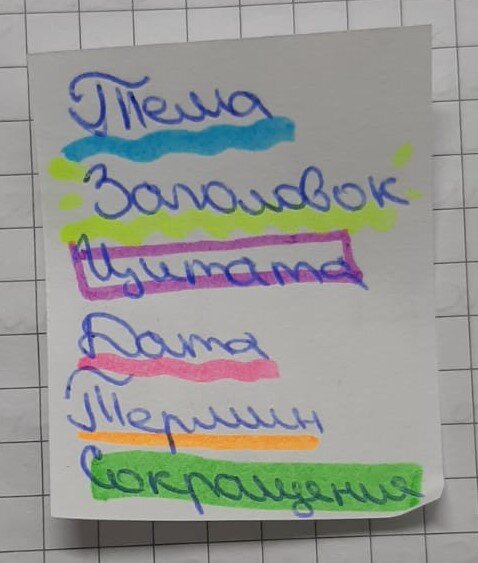 Тема
Заголовок
Цитата
Дата
Термин
Сокращения